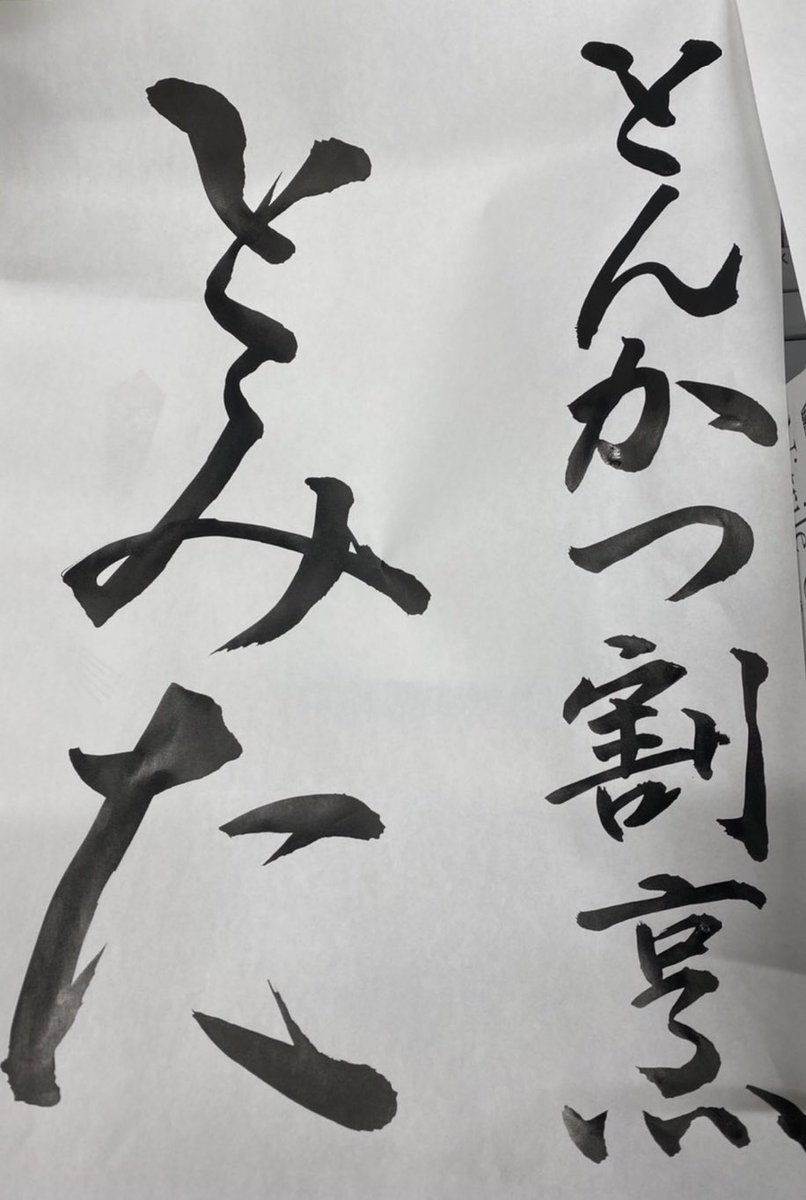 とんかつ割烹
とみた